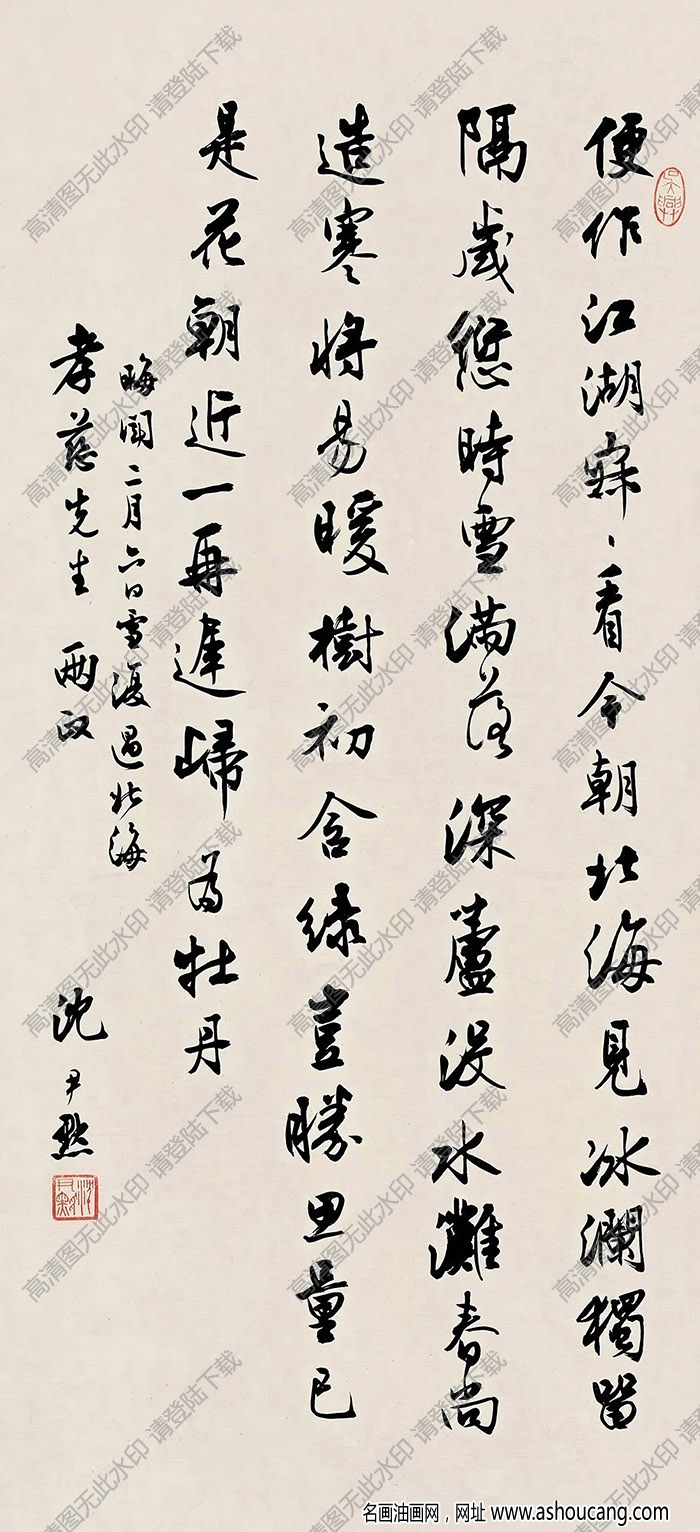 吳興
便作江湖寐〻看今朝北海見冰瀾獨留
隔歲愆時雪滿落深蘆没水灘春尚
造寒將易暖樹初含綠豈勝思量已
是花朝近一再遲歸為牡丹
晦聞二月六日雪後過北海
孝慈先生 兩政 沈尹默
沈尹默
高清图无此水印 请登陆下载
名画油画网，网址 www.ashoucang.com